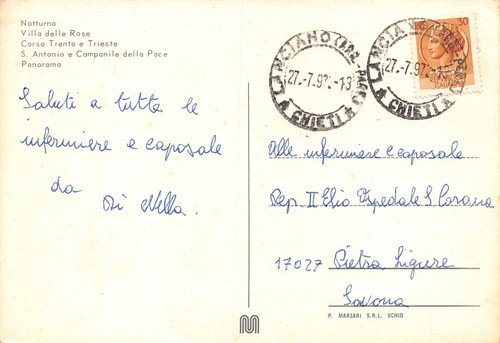 Notturno
Villa delle Rose
Corso Trento e Trieste
S. Antonio e Campanile della Pace
Panorama
Saluti a tutte le
infermiere e caposale
da
Nella.
LANCIANO
27.-7.97
CHIETI
LANCIANO
27.-7.97
CHIETI
30
Alle infermiere e caposale
Rep. II Elio Ospedale S. Corona
17027 Pietra Ligure
Savona
P. MARZARI S.R.L. SCHIO